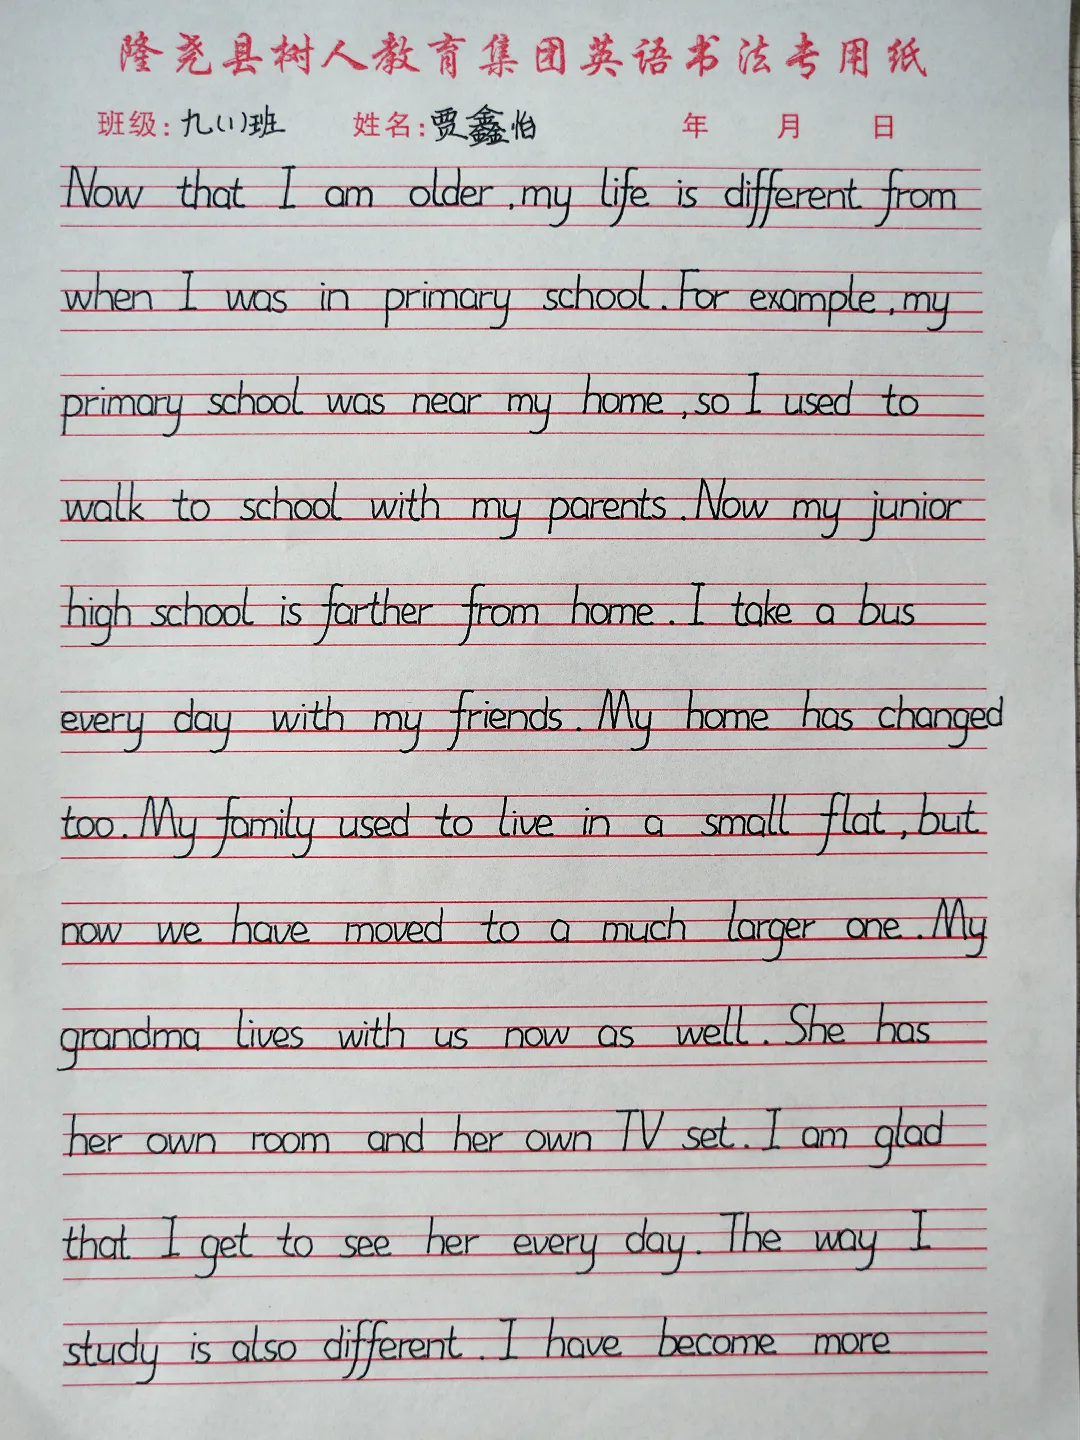 隆尧县树人教育集团英语书法专用纸
班级:九(1)班 姓名:贾鑫怡 年 月 日
Now that I am older,my life is different from
when I was in primary school.For example,my
primary school was near my home,so I used to
walk to school with my parents.Now my junior
high school is farther from home.I take a bus
every day with my friends.My home has changed
too.My family used to live in a small flat,but
now we have moved to a much larger one.My
grandma lives with us now as well.She has
her own room and her own TV set.I am glad
that I get to see her every day.The way I
study is also different.I have become more